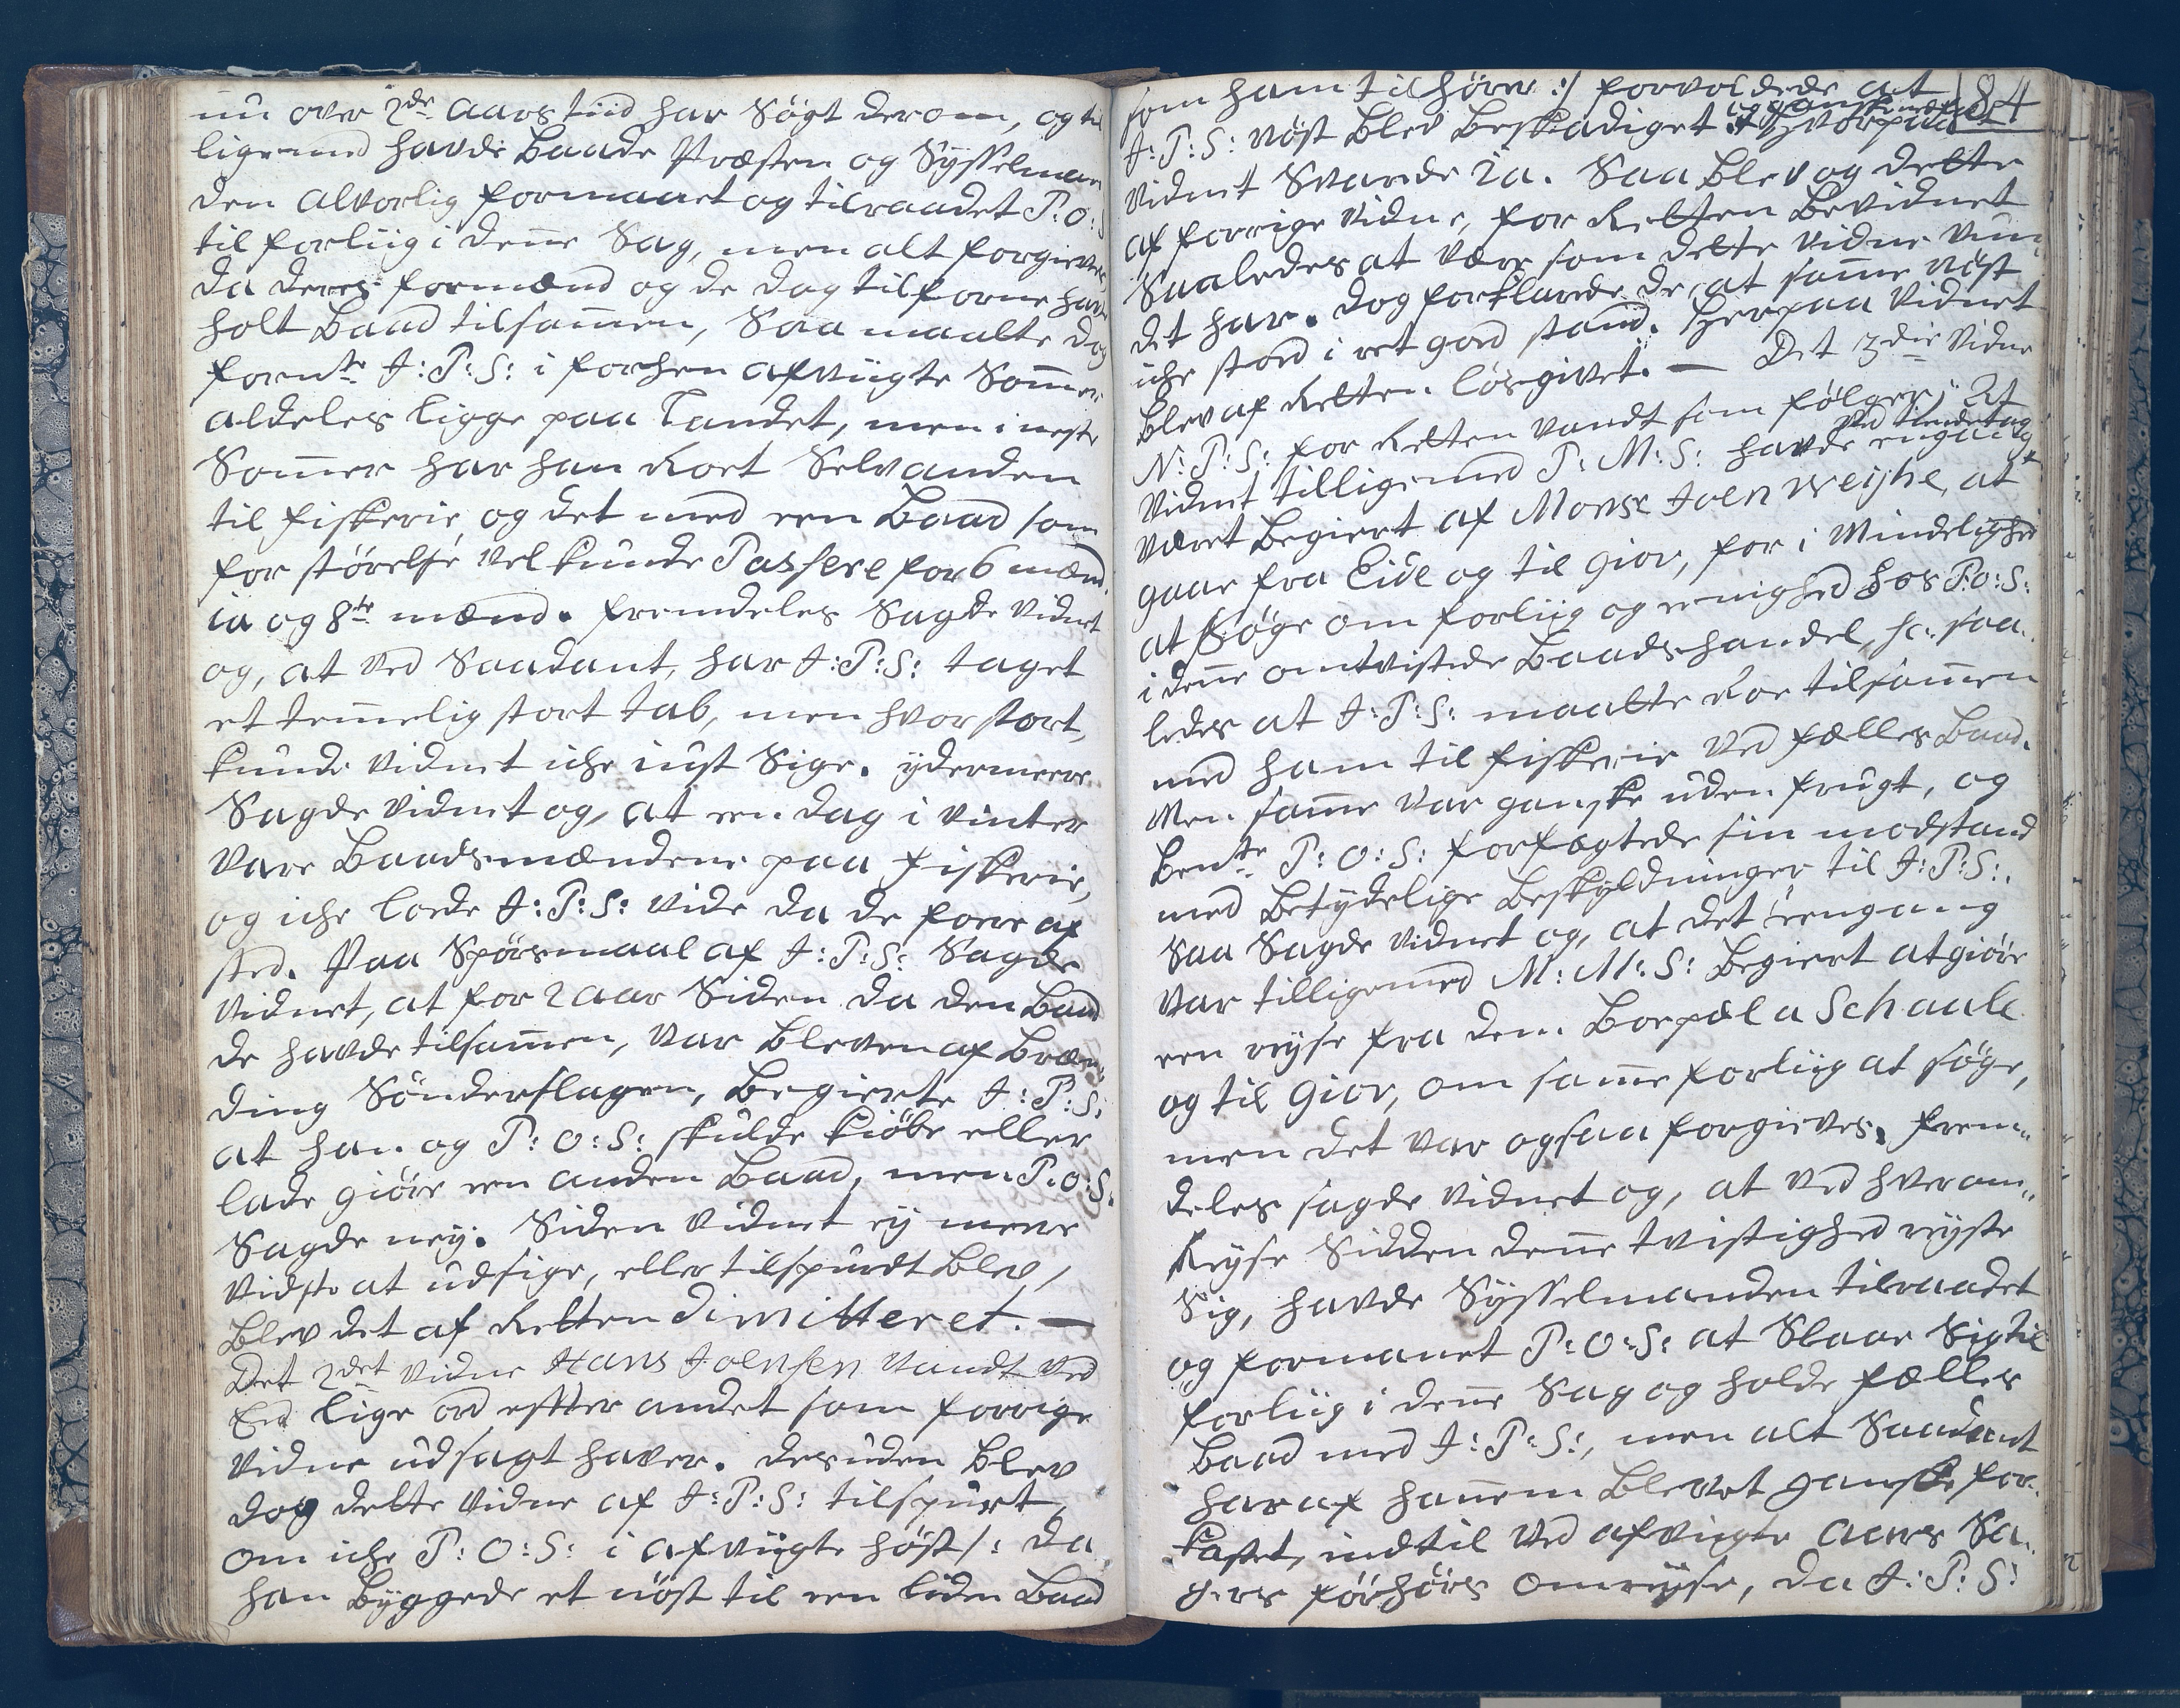 nu over 2de Aars tiid har Søgt derom, og til
ligemed havde Baade Præsten og Sysselman
den alvorlig formaaet og tilraadet P: O: S:
til forliig i denne Sag, men alt forgieves
da deres formænd og de dag tilforne havde
holt Baad tilsammen, Saa maatte dog
formte J: P: S: i forhen afviigte Sommer
aldeles ligge paa Landet, men i neste
Sommer har han Roet Selvanden
til fiskerie og det med een Baad som
for størelse vel kunde Passere for 6 mænd
ia og 8te mænd. fremdeles Sagde vidnet
og, at ved Saadant, har J: P: S: taget
et temmelig stort tab, men hvor stort,
kunde vidnet iche iust Sige. ydermeere
Sagde vidnet og, at een dag i vinter
vare Baadsmændene paa fiskerie,
og iche loede J: P: S: vide da de foere af
sted. Paa Spørsmaal af J: P: S: Sagde
vidnet, at for 2 aar Siden da den Baad
de havde tilsammen, var bleven af Bræn„
ding Sønderslagen, Begierte J: P: S:
at han og P: O: S: skulde kiøbe eller
lade giøre een anden Baad, men P: O: S:
Sagde ney. Siden vidnet ey meere
vidste at udsige, eller tilspurdt blev,
blev det af Retten dimitteret. —
Det 2det vidne Hans Joensen vandt ved
Eed lige ord efter andet som forrige
vidne udsagt haver. desuden blev
dog dette vidne af J: P: S: tilspurt,
om iche P: O: S: i afviigte høst /: da
han byggede et nøst til een liden Baad
som ham tilhører :/ forvoldede at 184
J: P: S: nøst blev beskadiget Hvorpaa
vidnet Svarede Ja. Saa blev og dette
af forrige vidne, for Retten bevidnet
Saaledes at være som dette vidne vun„
det har. dog forklarede de, at samme nøst
iche stoed i ret goed stand. Herpaa vidnet
blev af Retten løsgivet. — Det 3die vidne
N: P: S: for Retten vandt som følger: At
ved tiendetag
vidnet tilligemed P: M: S: havde engang
været begiert af Monsr Joen Weyhe, at
gaae fra Eide og til Giov, for i Mindelighed
at Søge om forliig og eenighed hos P: O: S:
i denne omtvistede Baadshandel, saa„
ledes at J: P: S: maatte Roe tilsammen
med ham til fiskerie ved fælles Baad.
Men samme var ganske uden frugt, og
bemte P: O: S: forfægtede sin modstand
med betydelige beskyldninger til J: P: S:.
Saa Sagde vidnet og, at det eengang
var tilligemed M: M: S: begiert at giøre
een reyse fra dem
og til Giov, om samme forliig at søge,
men det var ogsaa forgieves. frem„
deles sagde vidnet og, at ved hver om„
Reyse Sidden denne tvistighed reyste
Sig, havde Sysselmanden tilraadet
og formanet P: O: S: at Slaae Sig til
forliig i denne Sag og holde fælles
Baad med J: P: S:, men alt Saadant
har af hannem blevet ganske for„
kastet, indtil ved afvigte aars Sa„
gers forhørs omreyse, da J: P: S: